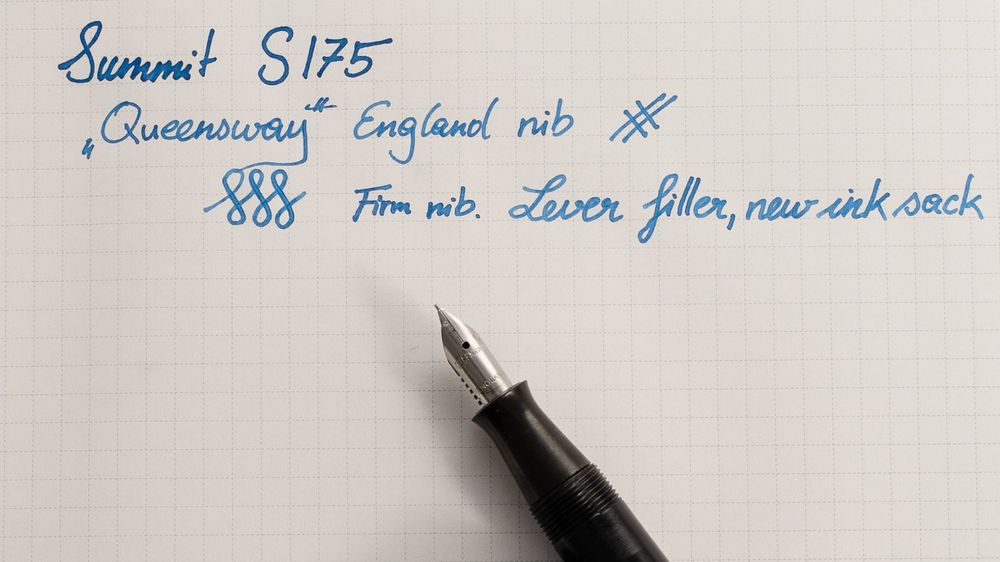 Summit S175
„Queensway“ England nib
Firm nib. Lever filler, new ink sack